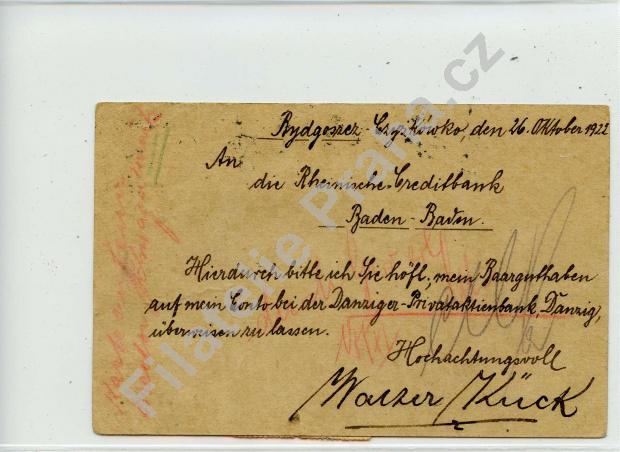 Bydgoszcz-Czyżkówko, den 26. Oktober 1922
An
die Rheinische Creditbank
Baden-Baden.
Hierdurch bitte ich Sie höfl., mein Baarguthaben
auf mein Conto bei der Danziger-Privataktienbank, Danzig,
überweisen zu lassen.
Hochachtungsvoll
Walter Kück
Filatelie Praha.cz